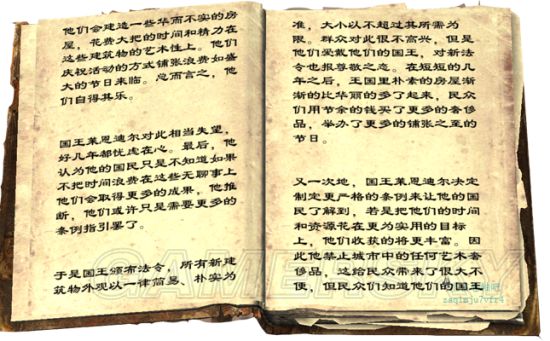 他们会建造一些华而不实的房
屋，花费大把的时间和精力在
这些建筑物的艺术性上。他们
庆祝活动的方式铺张浪费如盛
大的节日来临。总而言之，他
们自得其乐。
国王莱恩迪尔对此相当失望，
好几年都忧虑在心。最后，他
认为他的国民只是不知道如果
不把时间浪费在这些无聊事上
他们会取得更多的成果，他推
断，他们或许只是需要更多的
条例指引罢了。
于是国王颁布法令，所有新建
筑物外观以一律简易、朴实为
准，大小以不超过其所需为
限。群众对此很不高兴，但是
他们爱戴他们的国王，对新法
令也报尊敬之态。在短短的几
年之后，王国里朴素的房屋渐
渐的比华丽的多了起来，民众
们用节余的钱买了更多的奢侈
品，举办了更多的铺张之至的
节日。
又一次地，国王莱恩迪尔决定
制定更严格的条例来让他的国
民了解到，若是把他们的时间
和资源花在更为实用的目标
上，他们收获的将更丰富。因
此他禁止城市中的任何艺术奢
侈品，这给民众带来了很大不
便，但民众们知道他们的国王
GAMERSKY
zaq1mju7vfr4